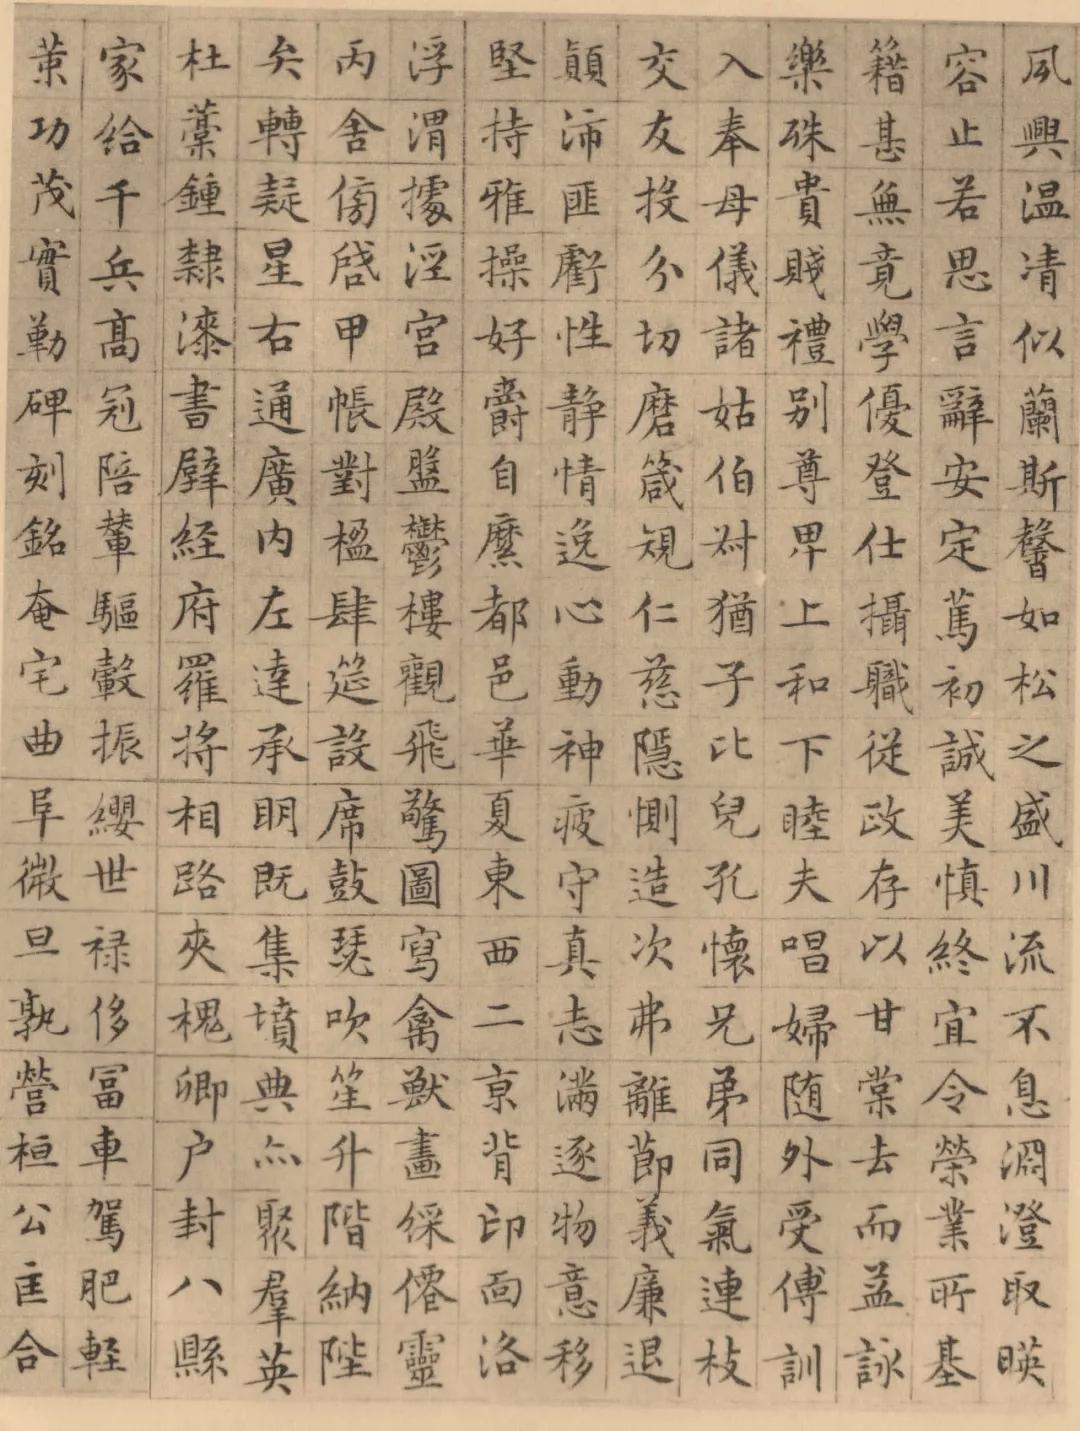 夙興温凊似蘭斯馨如松之盛川流不息淵澄取暎
容止若思言辭安定篤初誠美慎終宜令榮業所基
籍甚無竟學優登仕攝職従政存以甘棠去而益詠
樂殊貴賤禮别尊卑上和下睦夫唱婦随外受傅訓
入奉母儀諸姑伯叔猶子比兒孔懷兄弟同氣連枝
交友投分切磨箴規仁慈隱惻造次弗離節義廉退
顛沛匪虧性静情逸心動神疲守真志滿逐物意移
堅持雅操好爵自縻都邑華夏東西二京背邙面洛
浮渭據涇宫殿盤鬱樓觀飛驚圖寫禽獸畫綵僊靈
丙舍傍啓甲帳對楹肆筵設席鼓瑟吹笙升階納陛
矣轉疑星右通廣内左達承明既集墳典亦聚羣英
杜藁鍾隸漆書壁経府羅将相路夾槐卿户封八縣
家給千兵髙冠陪輦驅轂振纓世禄侈冨車駕肥軽
策功茂實勒碑刻銘奄宅曲阜微旦孰營桓公匡合